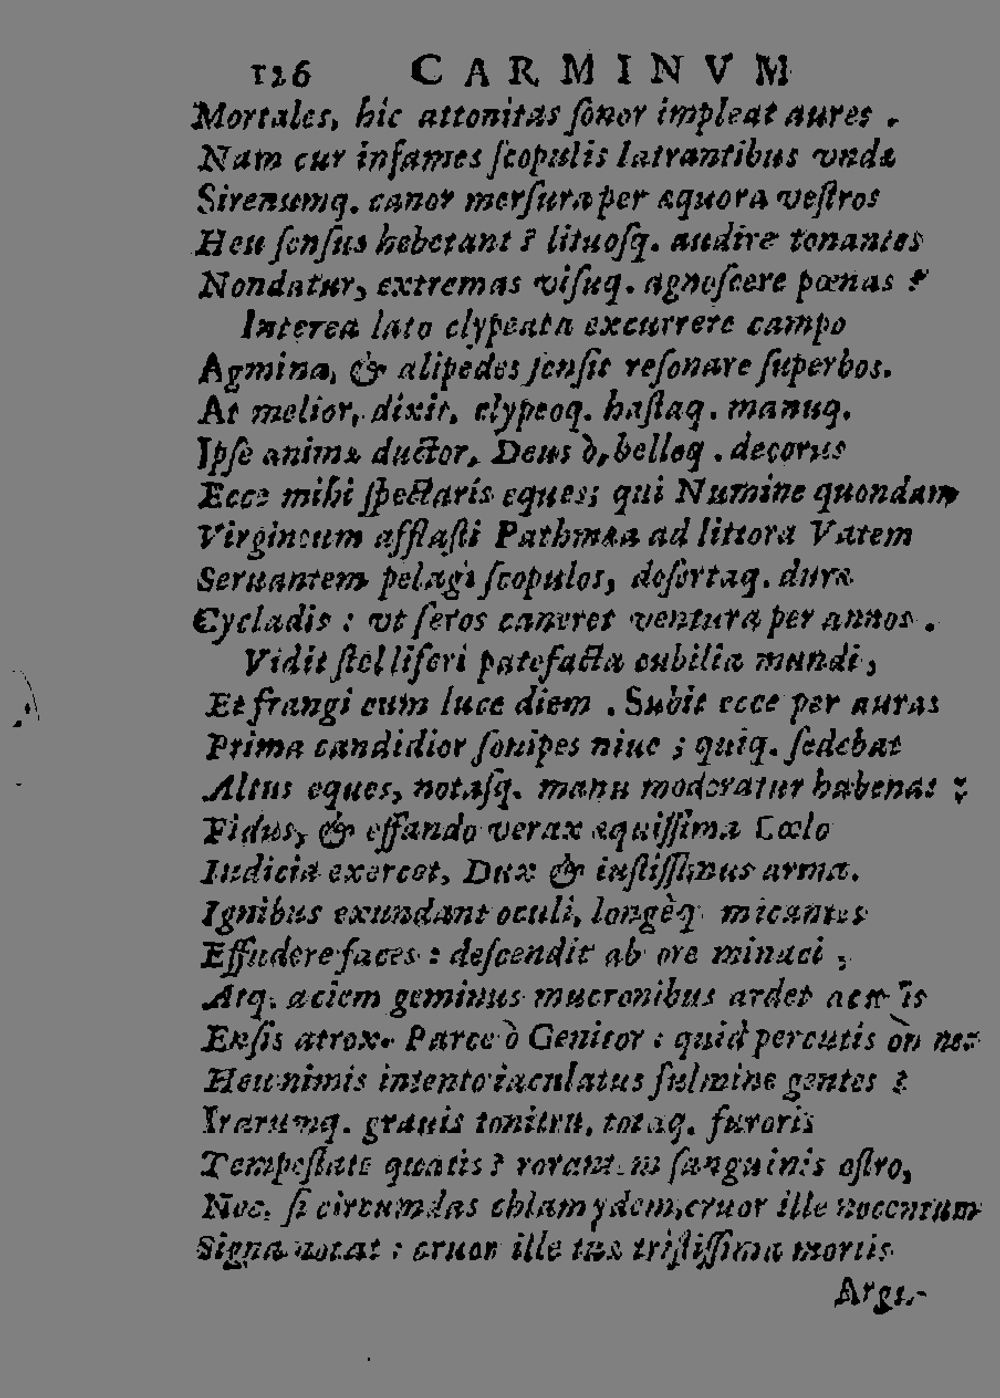 126 CARMINVM
Mortales, hic attonitas ſonor impleat aures.
Nam cur infames ſcopulis latrantibus vndæ
Sirenumq. canor merſura per æquora veſtros
Heu ſenſus hebetant? lituoſq. audire tonantes
Nondatur, extremas viſuq. agnoſcere pœnas?
Interea lato clypeata excurrere campo
Agmina, & alipedes ſenſit reſonare ſuperbos.
At melior, dixit, clypeoq. haſtaq. manuq.
Ipſe animæ ductor, Deus ò, belloq. decorus
Ecce mihi ſpectaris eques; qui Numine quondam
Virgineum afflaſti Pathmæa ad littora Vatem
Seruantem pelagi ſcopulos, deſertaq. duræ
Cycladis: vt ſeros caneret ventura per annos.
Vidit ſtelliferi patefacta cubilia mundi,
Et frangi cum luce diem. Subit ecce per auras
Prima candidior ſonipes niue; quiq. ſedebat
Altus eques, notaſq. manu moderatur habenas:
Fidus, & effando verax æquiſſima Cœlo
Iudicia exercet, Dux & iuſtiſſimus arma.
Ignibus exundant oculi, longèq. micantes
Effudere faces: deſcendit ab ore minaci,
Atq. aciem geminus mucronibus ardet
Enſis atrox. Parce ò Genitor: quid percutis
Heu nimis intento iaculatus fulmine gentes?
Irarumq. grauis tonitru, totaq. furoris
Tempeſtate quatis? ſanguinis oſtro,
Nec, ſi circumdas chlamydem, cruor ille nocentum
Signa notat: cruor ille tuæ triſtiſſima mortis